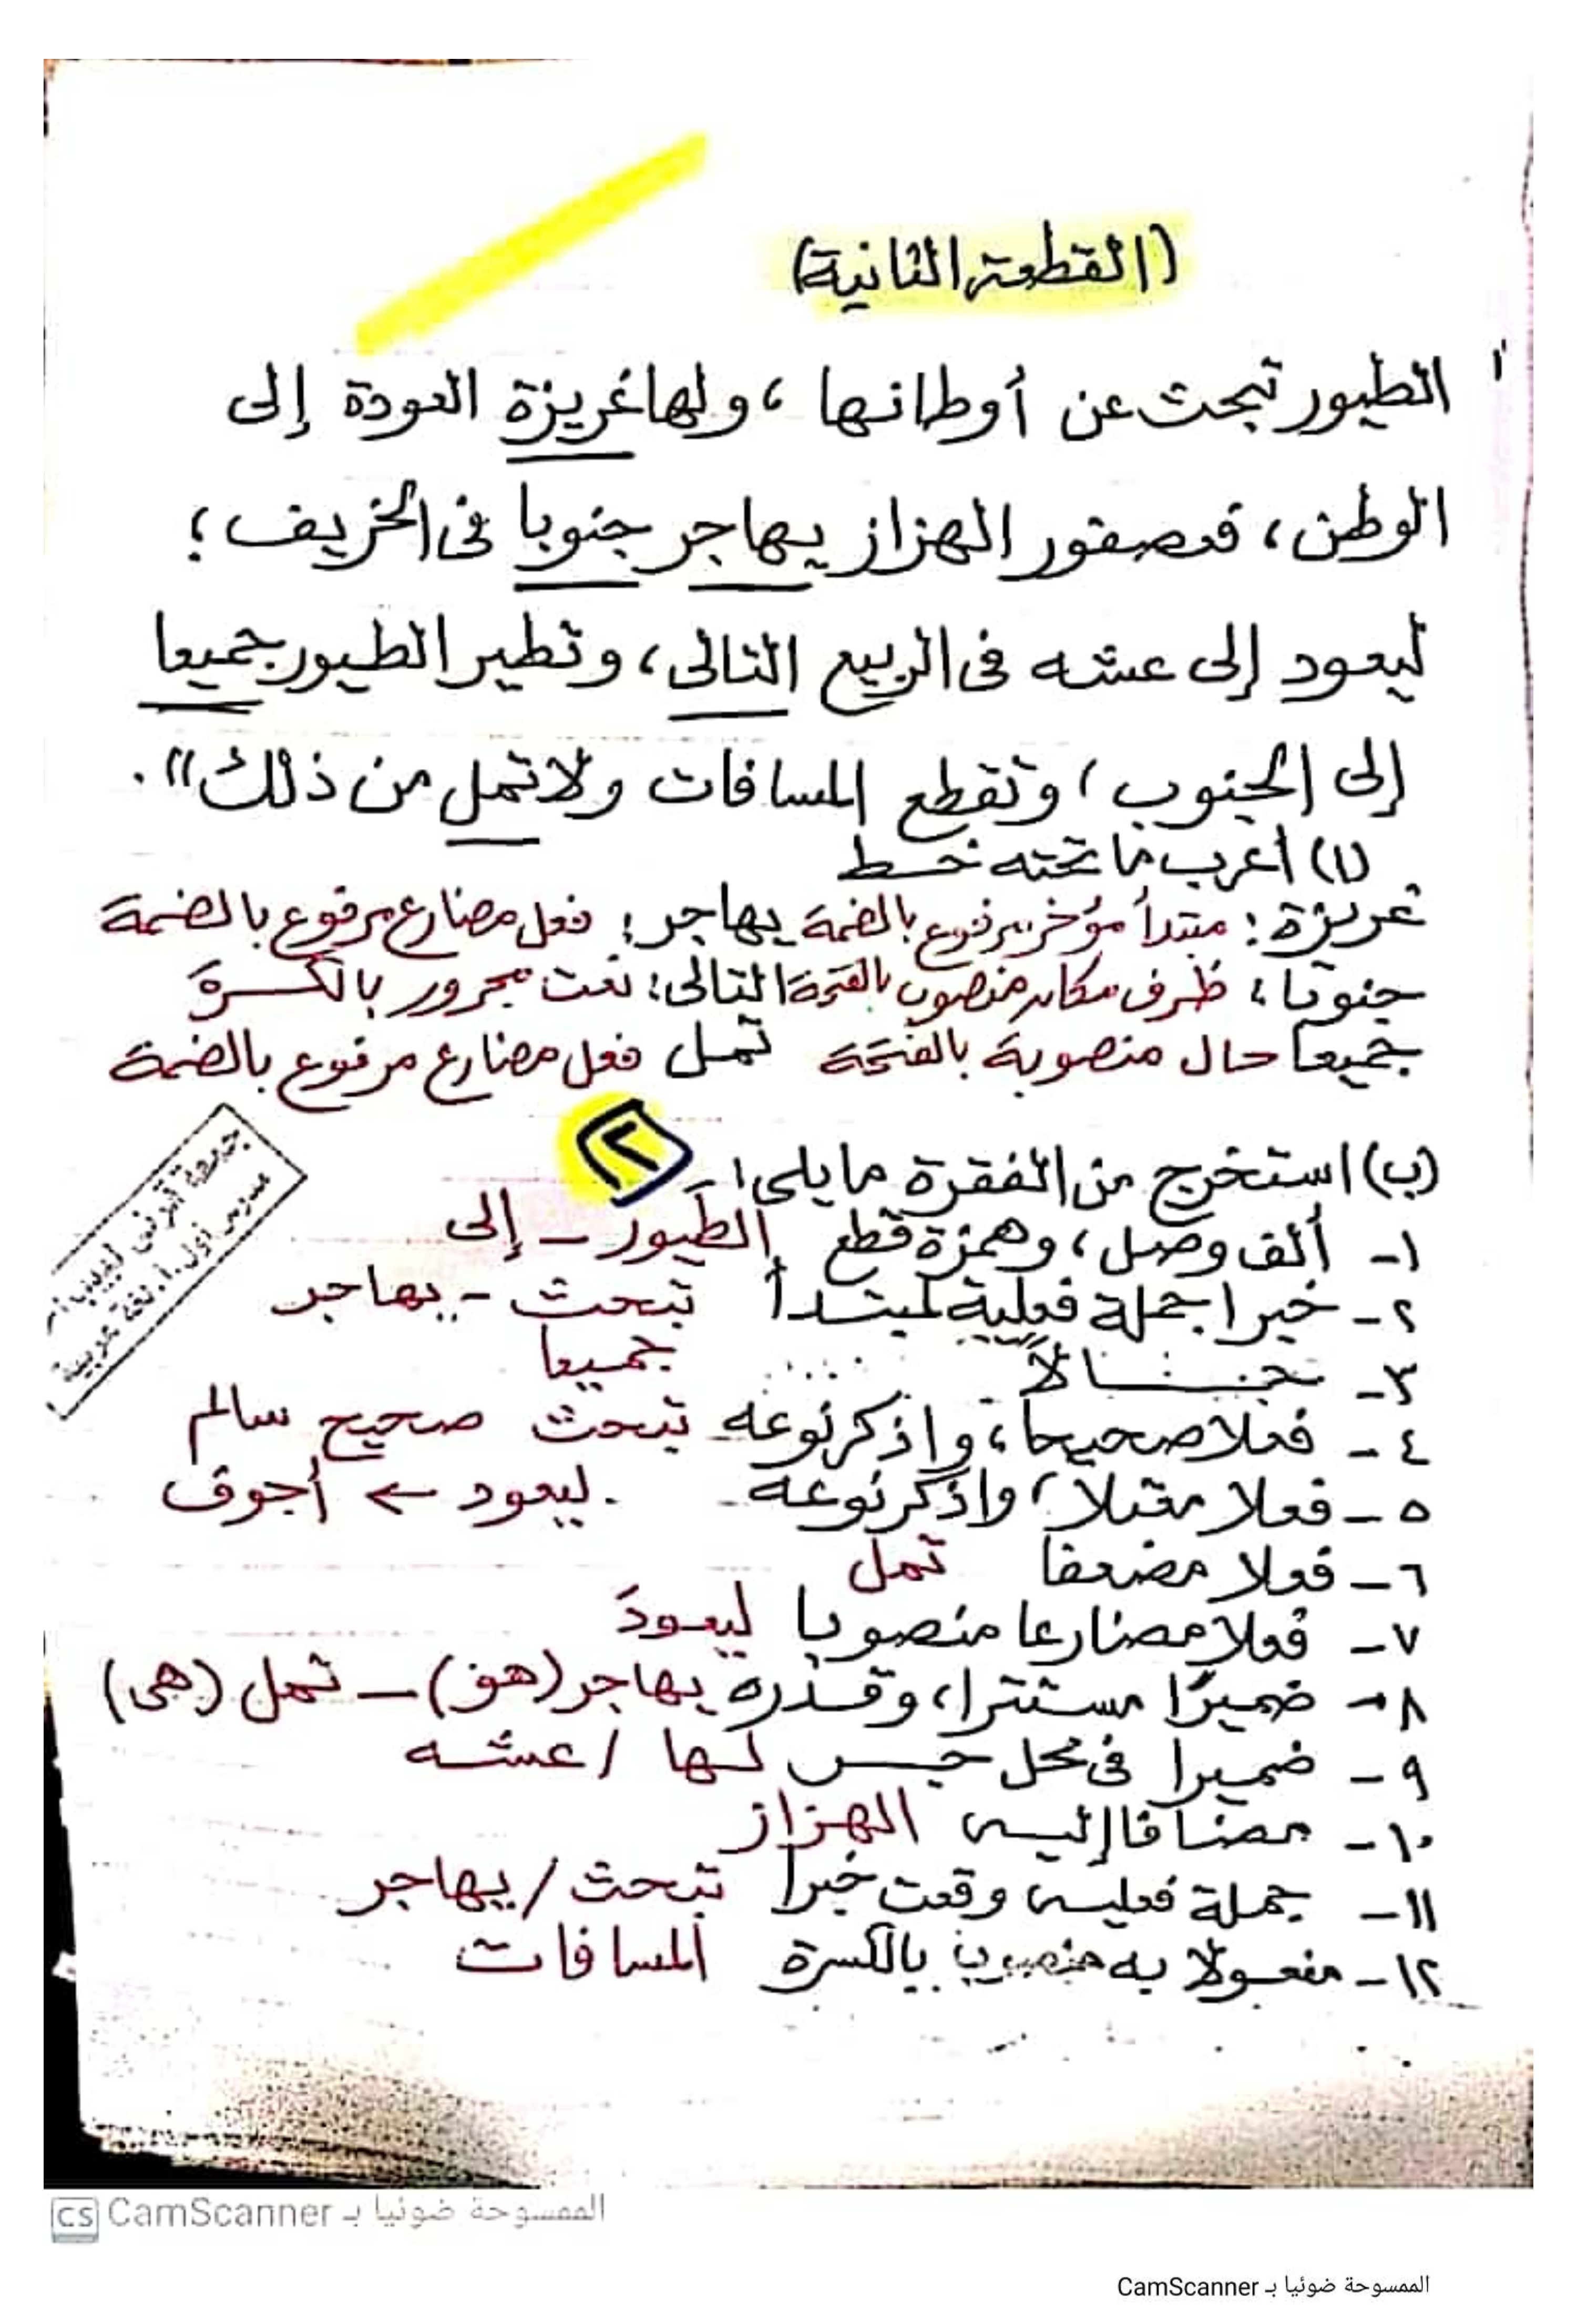 (القطعة الثانية)
الطيور تبحث عن أوطانها ، ولها غريزة العودة إلى
الوطن ، فعصفور الهزاز يهاجر جنوبا فى الخريف ؛
ليعود إلى عشه فى الربيع التالى ، وتطير الطيور جميعا
إلى الجنوب ، وتقطع المسافات ولا تمل من ذلك" .
(١) أعرب ما تحته خط
غريزة : مبتدأ مؤخر مرفوع بالضمة يهاجر : فعل مضارع مرفوع بالضمة
جنوبا : ظرف مكان منصوب بالفتحة التالى : نعت مجرور بالكسرة
جميعا حال منصوبة بالفتحة تمل فعل مضارع مرفوع بالضمة
٢
(ب) استخرج من الفقرة ما يلى :
١- ألف وصل ، وهمزة قطع الطيور - إلى
٢- خبرا جملة فعلية لمبتدأ تبحث - يهاجر
٣- حالاً جميعا
٤- فعلا صحيحا ، واذكر نوعه تبحث صحيح سالم
٥- فعلا معتلا ، واذكر نوعه ليعود ← أجوف
٦- فعلا مضعفا تمل
٧- فعلا مضارعا منصوبا ليعودَ
٨- ضميرًا مستترا ، وقدره يهاجر (هو) - تمل (هى)
٩- ضميرا فى محل جر لها / عشه
١٠- مضافا إليه الهزاز
١١- جملة فعلية وقعت خبرا تبحث / يهاجر
١٢- مفعولا به منصوبا بالكسرة المسافات
مدرس أول أ. لغة عربية
CS CamScanner الممسوحة ضوئيا بـ
الممسوحة ضوئيا بـ CamScanner